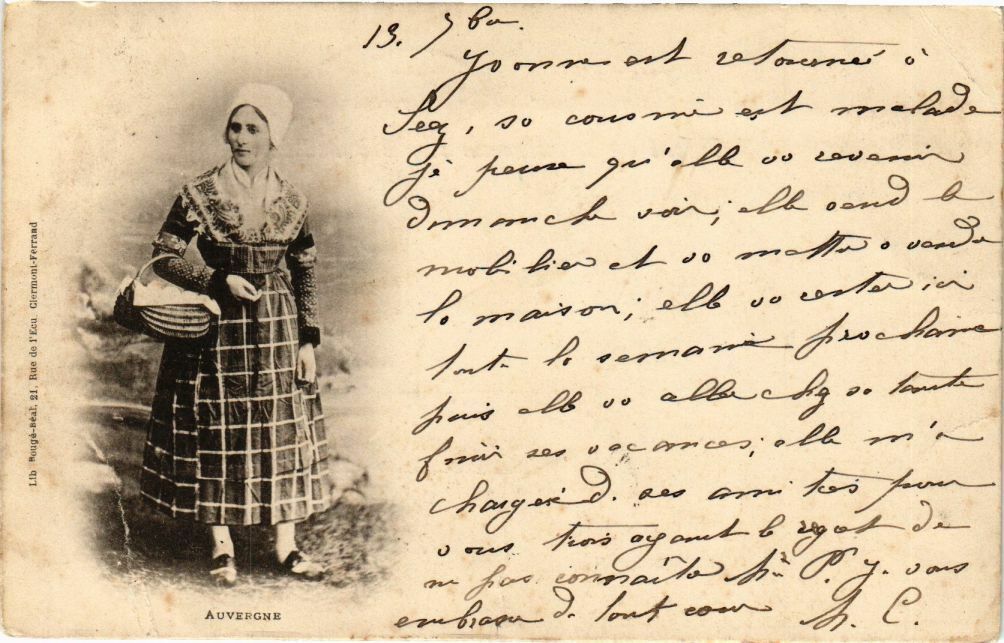 13. 7bre.
Yvonne est retournée à
Seg, sa cousine est malade
je pense qu'elle va revenir
dimanche soir; elle vend le
mobilier et va mettre a vendre
la maison; elle va rester ici
toute la semaine prochaine
puis elle va aller chez sa tante
finir ses vacances; elle m'a
chargée d. ses amitiés pour
vous trois ayant le regret de
ne pas connaître P. J. vous
embrasse d. tout coeur
AUVERGNE
Lib Rougé-Béal, 21, Rue de l'Ecu, Clermont-Ferrand